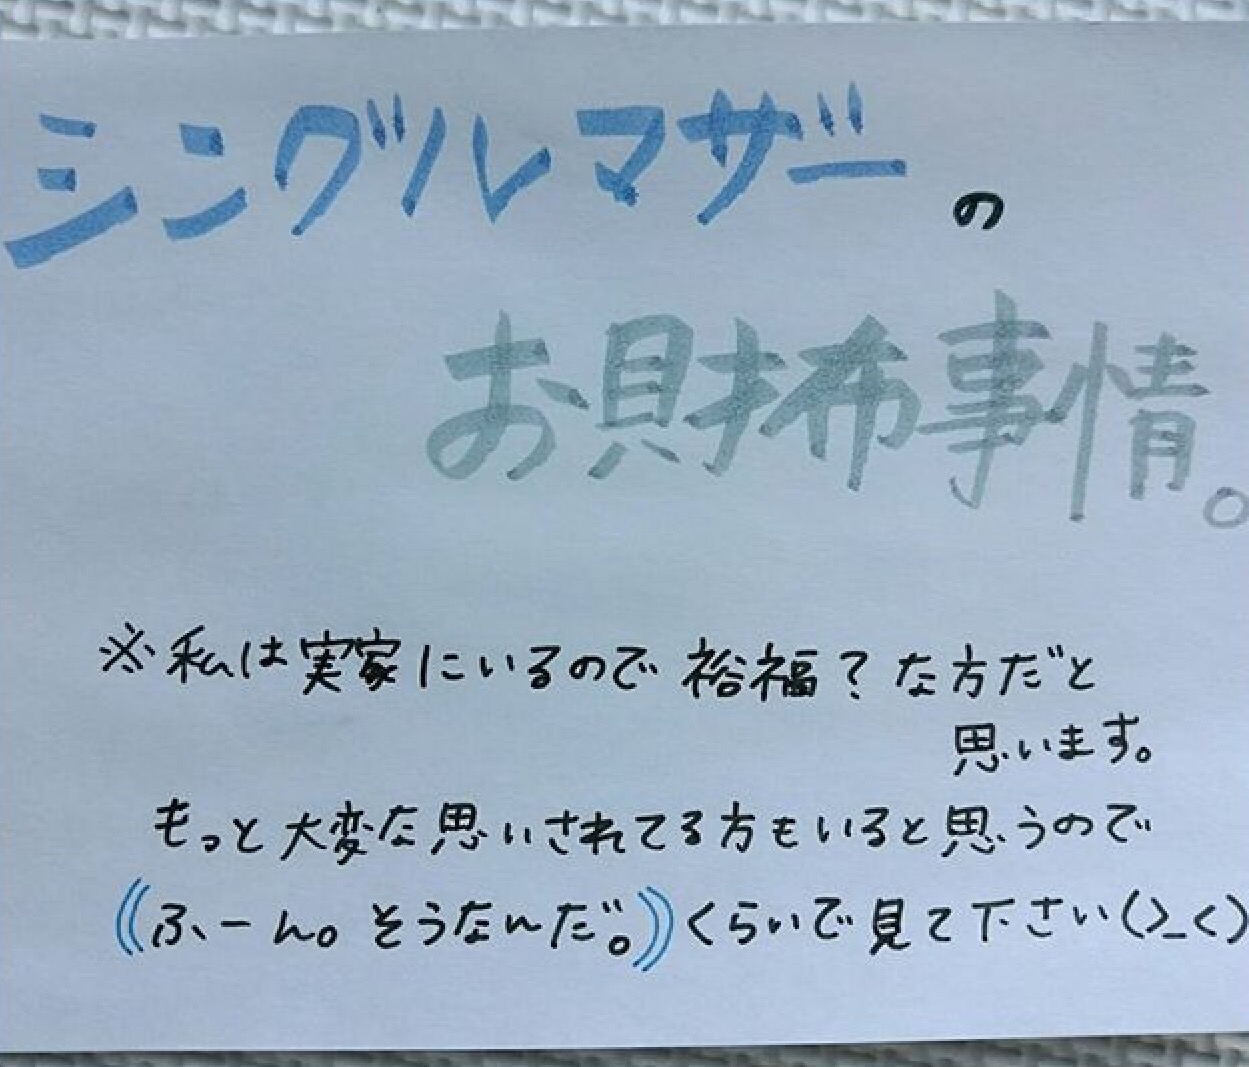 シングルマザーの
お財布事情。
※私は実家にいるので裕福？な方だと
思います。
もっと大変な思いされてる方もいると思うので
((ふーん。そうなんだ。))くらいで見て下さい(>_<)